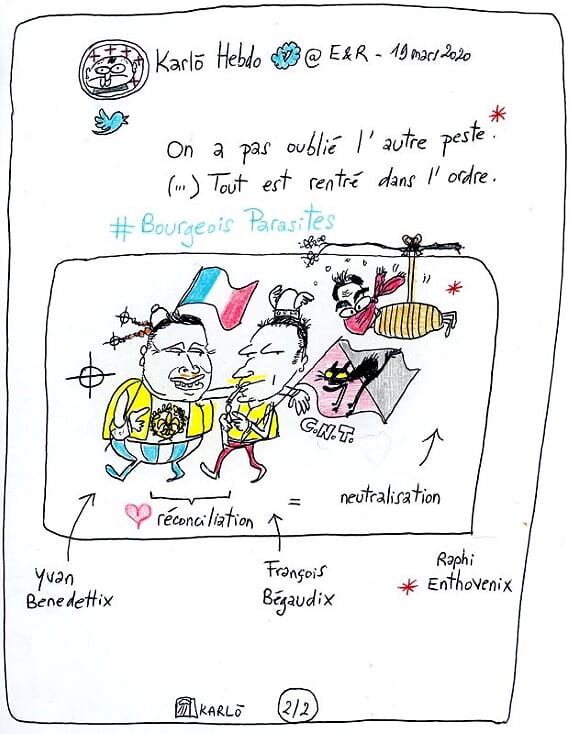 Karlō Hebdo @ E&R - 19 mars 2020
On a pas oublié l'autre peste.*
(...) Tout est rentré dans l'ordre.
# Bourgeois Parasites
*
C.N.T.
réconciliation = neutralisation
Yvan
Benedettix
François
Bégaudix
Raphi
* Enthovenix
KARLŌ 2/2